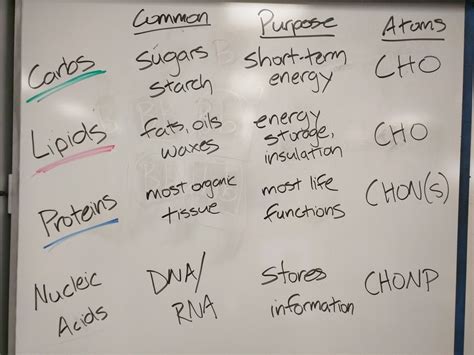 Common Purpose Atoms
Carbs sugars short-term CHO
starch energy
Lipids fats, oils energy CHO
waxes storage,
insulation
Proteins most organic most life CHON(s)
tissue functions
Nucleic DNA/ Stores CHONP
Acids RNA information